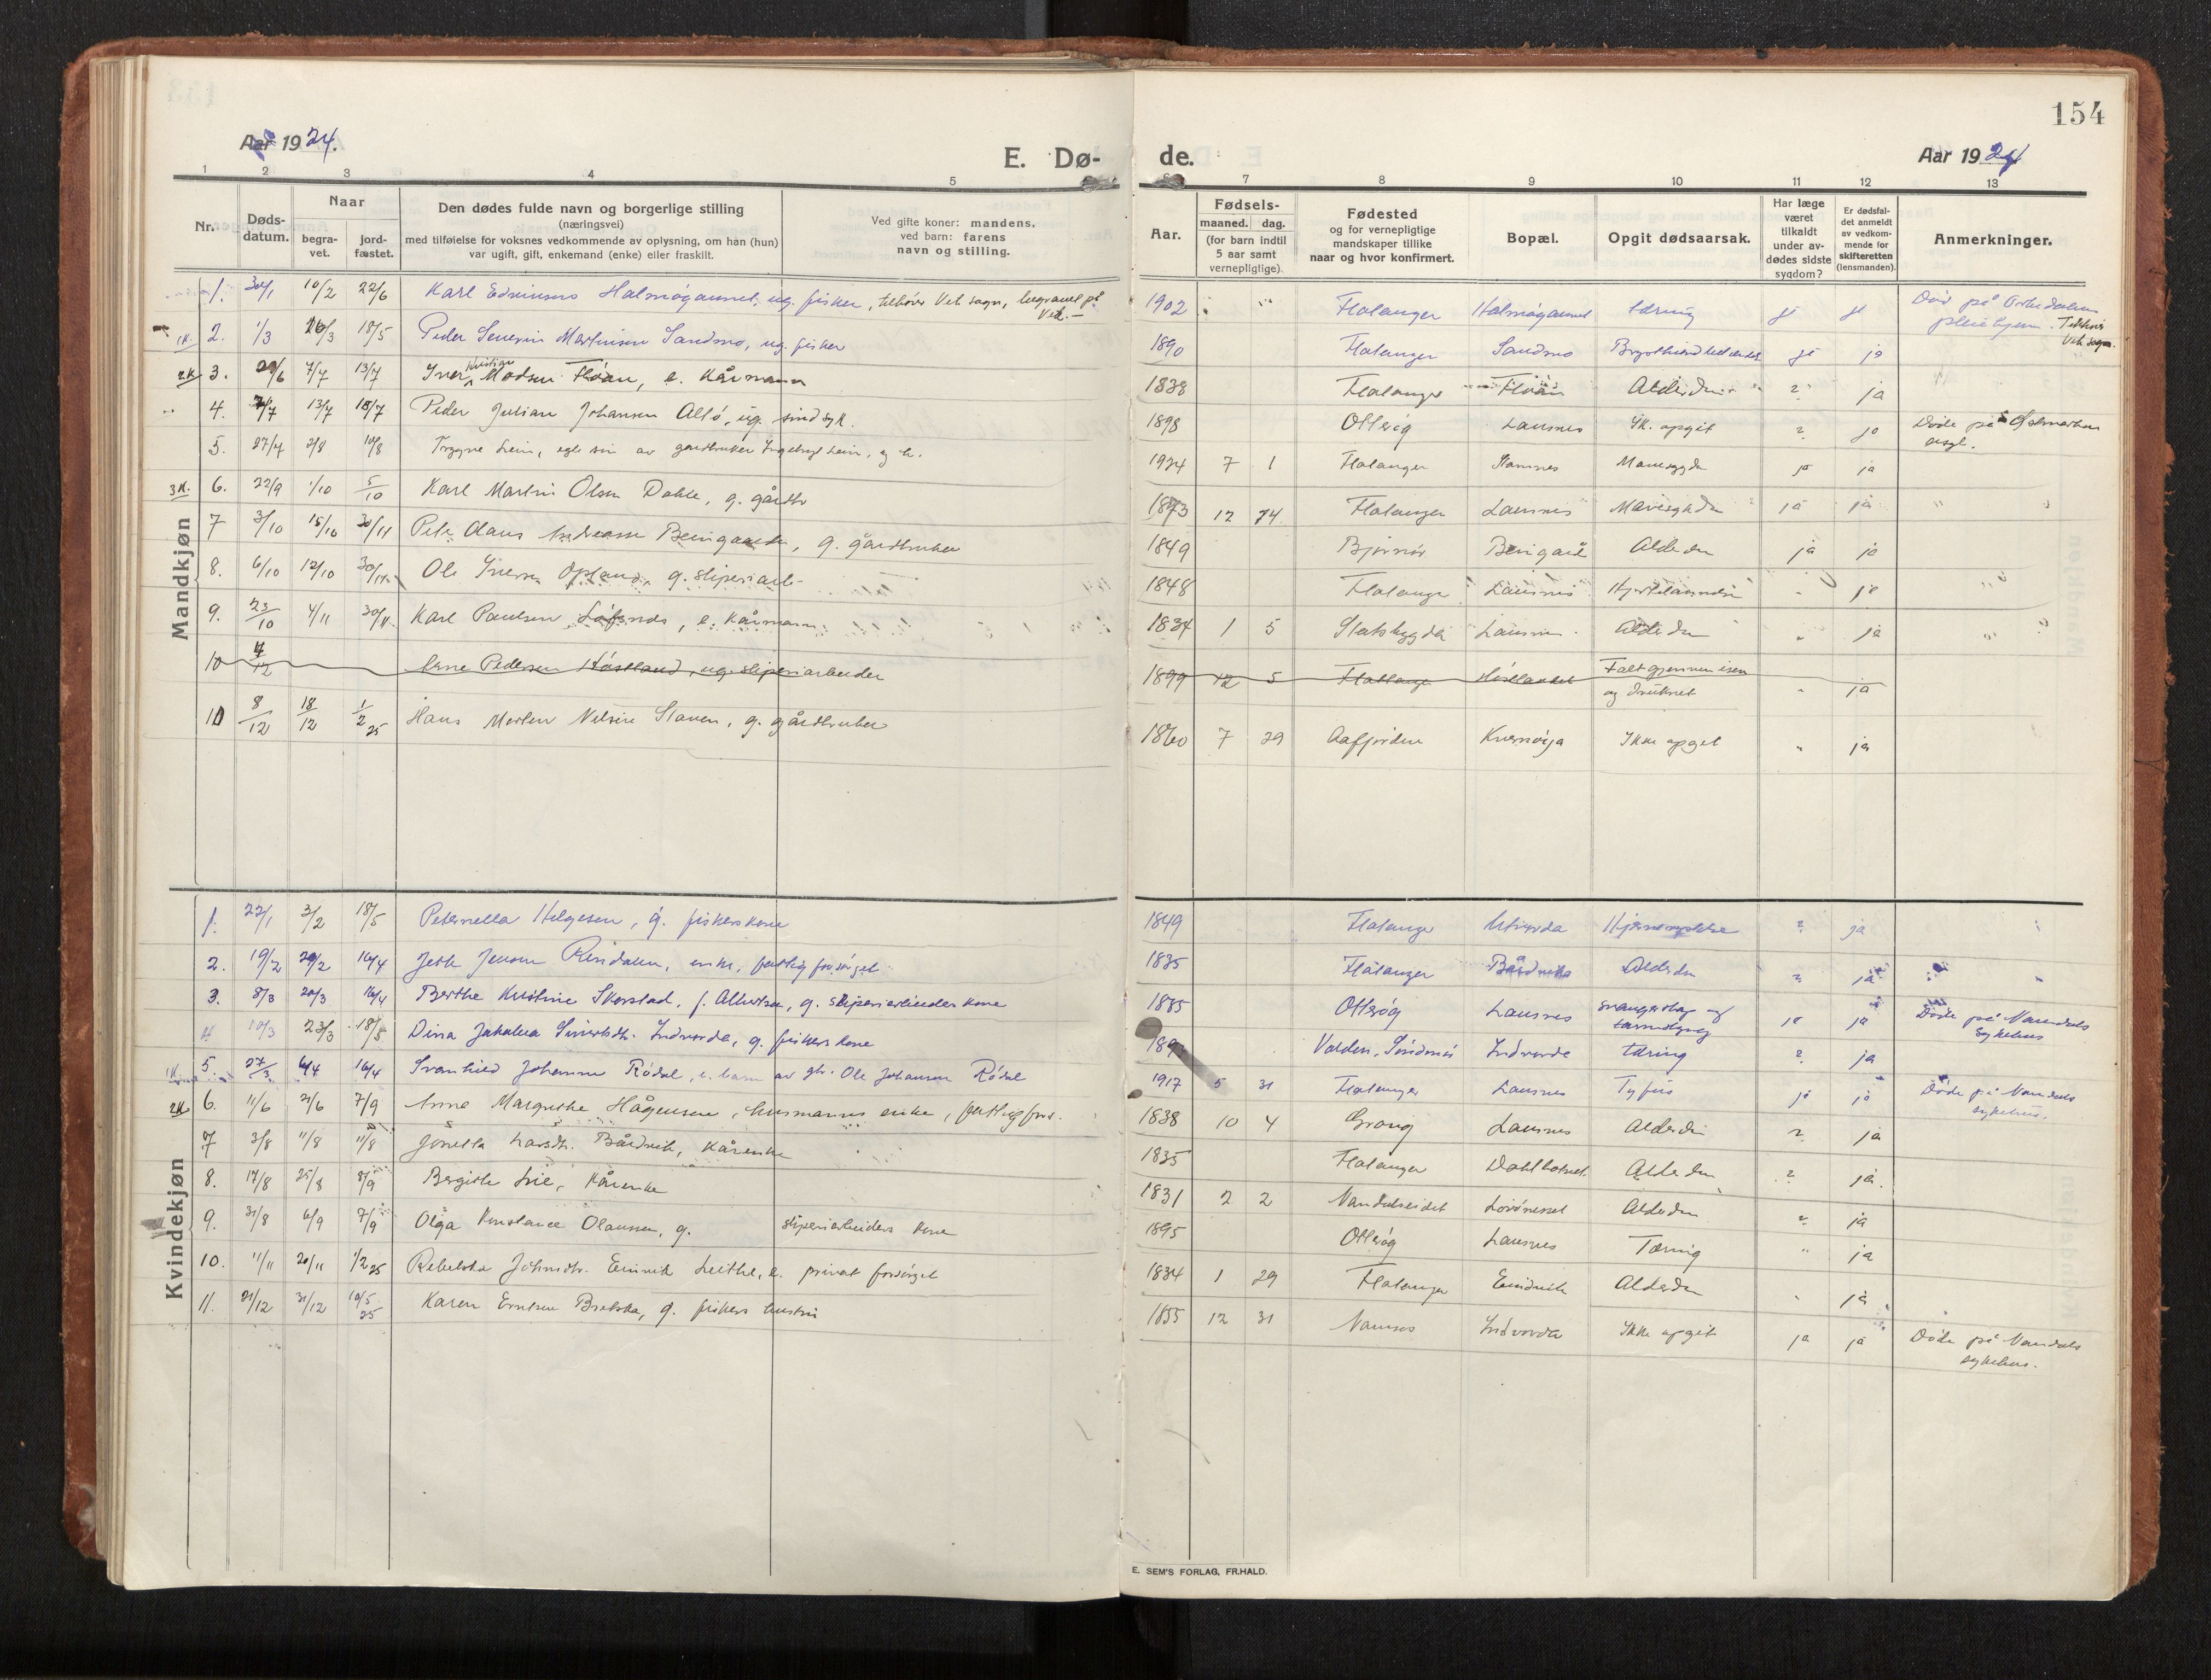 154
Aar 1924.
E. Dø-
de.
Aar 1924
1 2 3 4 5
6 7 8 9 10 11 12 13
Nr.
Døds-
datum.
Naar
begra-
vet.
jord-
fæstet.
Den dødes fulde navn og borgerlige stilling
(næringsvei)
med tilføielse for voksnes vedkommende av oplysning, om han (hun)
var ugift, gift, enkemand (enke) eller fraskilt.
Ved gifte koner: mandens,
ved barn: farens
navn og stilling.
Aar.
Fødsels-
maaned. dag.
(for barn indtil
5 aar samt
vernepligtige).
Fødested
og for vernepligtige
mandskaper tillike
naar og hvor konfirmert.
Bopæl.
Opgit dødsaarsak.
Har læge
været
tilkaldt
under av-
dødes sidste
sygdom?
Er dødsfal-
det anmeldt
av vedkom-
mende for
skifteretten
(lensmanden).
Anmerkninger.
Mandkjøn
1. 30/1 10/2 22/6 Karl Halmøgannet, ug. fisker, tilhører Vik sogn, begravet på
Vik.
2. 1/3 18/5 Peder Severin Martinsen Sandmo, ug. fisker
2K 3. 7/7 13/7 Iver Kristian Madsen Fløan, e. kårmann
4. 13/7 Peder Julian Johansen Altø, ug. sindsyk.
5. 2/8 10/8 Trygve Lein, egte søn av gardbruker Lein, og h.
3K. 6. 22/9 1/10 5/10 Karl Martin Olsen Dahle, g. gårdbr
7 3/10 15/10 30/11 g. gårdbruker
8. 6/10 12/10 30/11 Ole Iversen Opland, g. sliperiarb
9. 23/10 4/11 30/11 Karl Paulsen e. kårmann
10 4/12 Arne Pedersen Høstland, ug. sliperiarbeider
11 8/12 18/12 1/2 25 Hans Morten Nilsen Staven, g. gårdbruker
1902 Flatanger Halmøgannet tæring ja ja Død på
pleiehjem. Tilhører
Vik sogn.
1890 Flatanger Sandmo ja ja
1838 Flatanger Fløan Alderdom ? ja
1898 Otterøy Lausnes Ik. opgit ? ja Døde på
asyl.
1924 7 1 Flatanger Mavesygdom ja ja
1873 12 24 Flatanger Lausnes Mavesygdom ja ja
1849 Bjørnør Beingård Alderdom ja ja
1848 Flatanger Lausnes ja
1834 1 5 Stadsbygden Lausnes Alderdom ja
1899 12 5 Flatanger Høstlandet Falt gjennem isen
og druknet ja
1860 7 29 Aafjorden Kvernøya Ikke opgit ja
Kvindekjøn
1. 22/1 3/2 18/5 Peternella Helgesen, g. fiskers kone
2. 19/2 16/4 Jensen Rindalen, enke, fattigforsørget
3. 8/3 20/3 16/4 Berthe Kristine Skorstad, f. Albertsen, g. sliperiarbeiders kone
4 10/3 23/3 18/5 Dina Jakobea Indvorda, g. fiskers kone
5. 27/3 6/4 16/4 Svanhild Johanne Rødal, e. barn av gbr. Ole Johansen Rødal
2K 6. 11/6 21/6 7/9 Anna Margrethe Hågensen, husmanns enke, fattigfors.
7 3/8 11/8 11/8 Jonetta Larsdtr. Bårdvik, kårenke
8. 17/8 25/8 8/9 Bergitte Lie, kårenke
9. 31/8 6/9 7/9 Olga Konstance Olaussen, g. sliperiarbeiders kone
10. 11/11 20/11 1/2 25 Rebekka Johnsdtr. Einvik Leithe, e. privat forsørget
11. 21/12 31/12 10/5 25 Karen Erntsen Brekka, g. fiskers hustru
1849 Flatanger Utvorda ? ja
1835 Flatanger Bårdvik Alderdom ja
1885 Otterøy Lausnes svangerskap og
ja ja Døde på Namdals
sykehus
Indvorda tæring ? ja
1917 5 31 Flatanger Lausnes Tyfus ja ja Døde på Namdals
sykehus.
1838 10 4 Grong Lausnes Alderdom ? ja
1835 Flatanger Dahlbotnet Alderdom ? ja.
1831 2 2 Namdalseidet Alderdom ? ja
1895 Otterøy Lausnes Tæring ja
1834 1 29 Flatanger Einvik Alderdom ja
1855 12 31 Namsos Indvorda Ikke opgit ja ja Døde på Namdals
sykehus.
E. SEM'S FORLAG, FR.HALD.